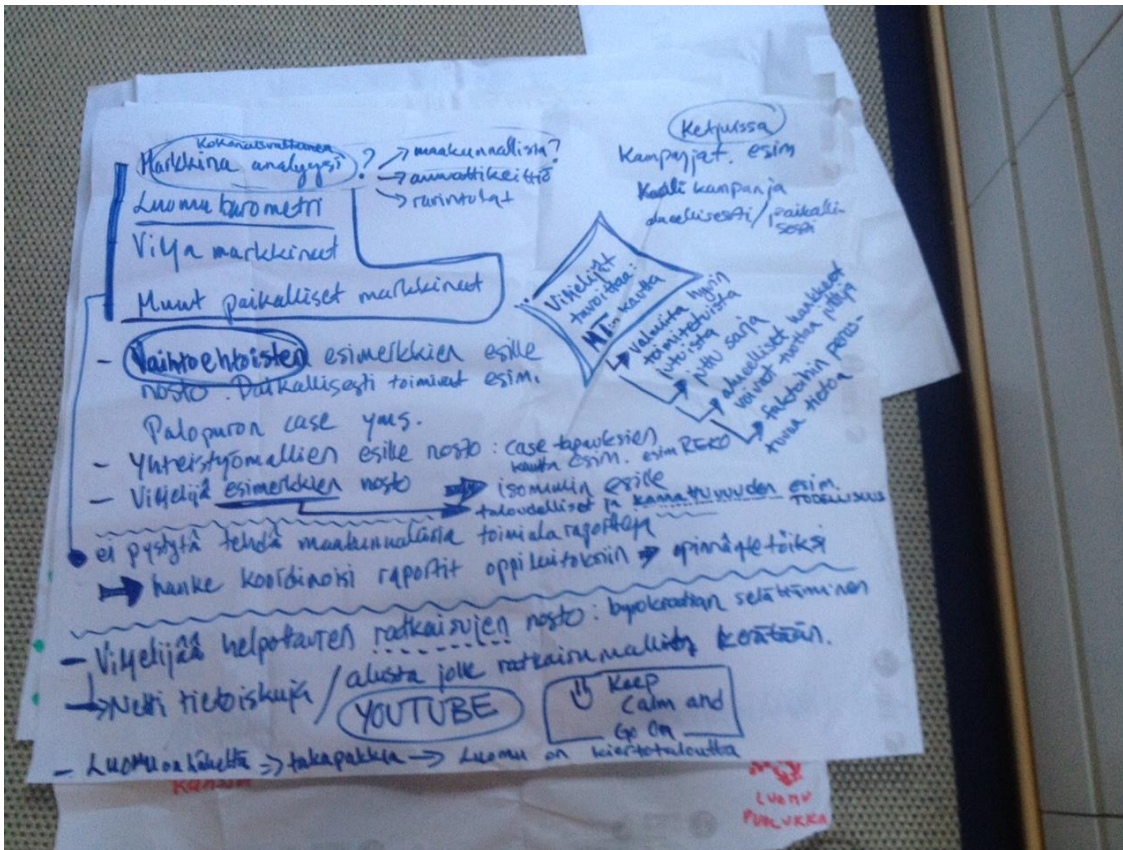 Kokonaisvaltainen
Markkina analyysi ?
→ maakunnallista?
→ ammattikeittiö
→ ravintolat
Luomubarometri
Vilja markkinat
Muut paikalliset markkinat
Ketjuissa
Kampanjat. esim
Kaali kampanja
alueellisesti / paikalli-
sesti
Viljelijät
tavoittaa:
MT:n kautta
valmiita hyvin
toimitetuista
jutuista
juttu sarja
alueelliset hankkeet
voivat tuottaa juttuja
faktoihin perus-
tuvaa tietoa
- Vaihtoehtoisten esimerkkien esille
nosto. Paikallisesti toimivat esim.
Palopuron case yms.
- Yhteistyömallien esille nosto: case tapauksien
kautta esim. esim REKO
- Viljelijä esimerkkien nosto → isommin esille
taloudelliset ja kannattavuuden esim.
TODELLISUUS
ei pystytä tehdä maakunnallisia toimiala raportteja
→ hanke koordinoisi raportit oppilaitoksiin → opinnäytetöiksi
- Viljelijää helpottavien ratkaisujen nosto: byrokratian selättäminen
→ Netti tietoiskuja / alusta jolle ratkaisumalleja kerätään.
YOUTUBE
Keep
Calm and
Go On
- Luomu on → takapakkia → Luomu on kiertotaloutta
LUOMU
PUOLUKKA